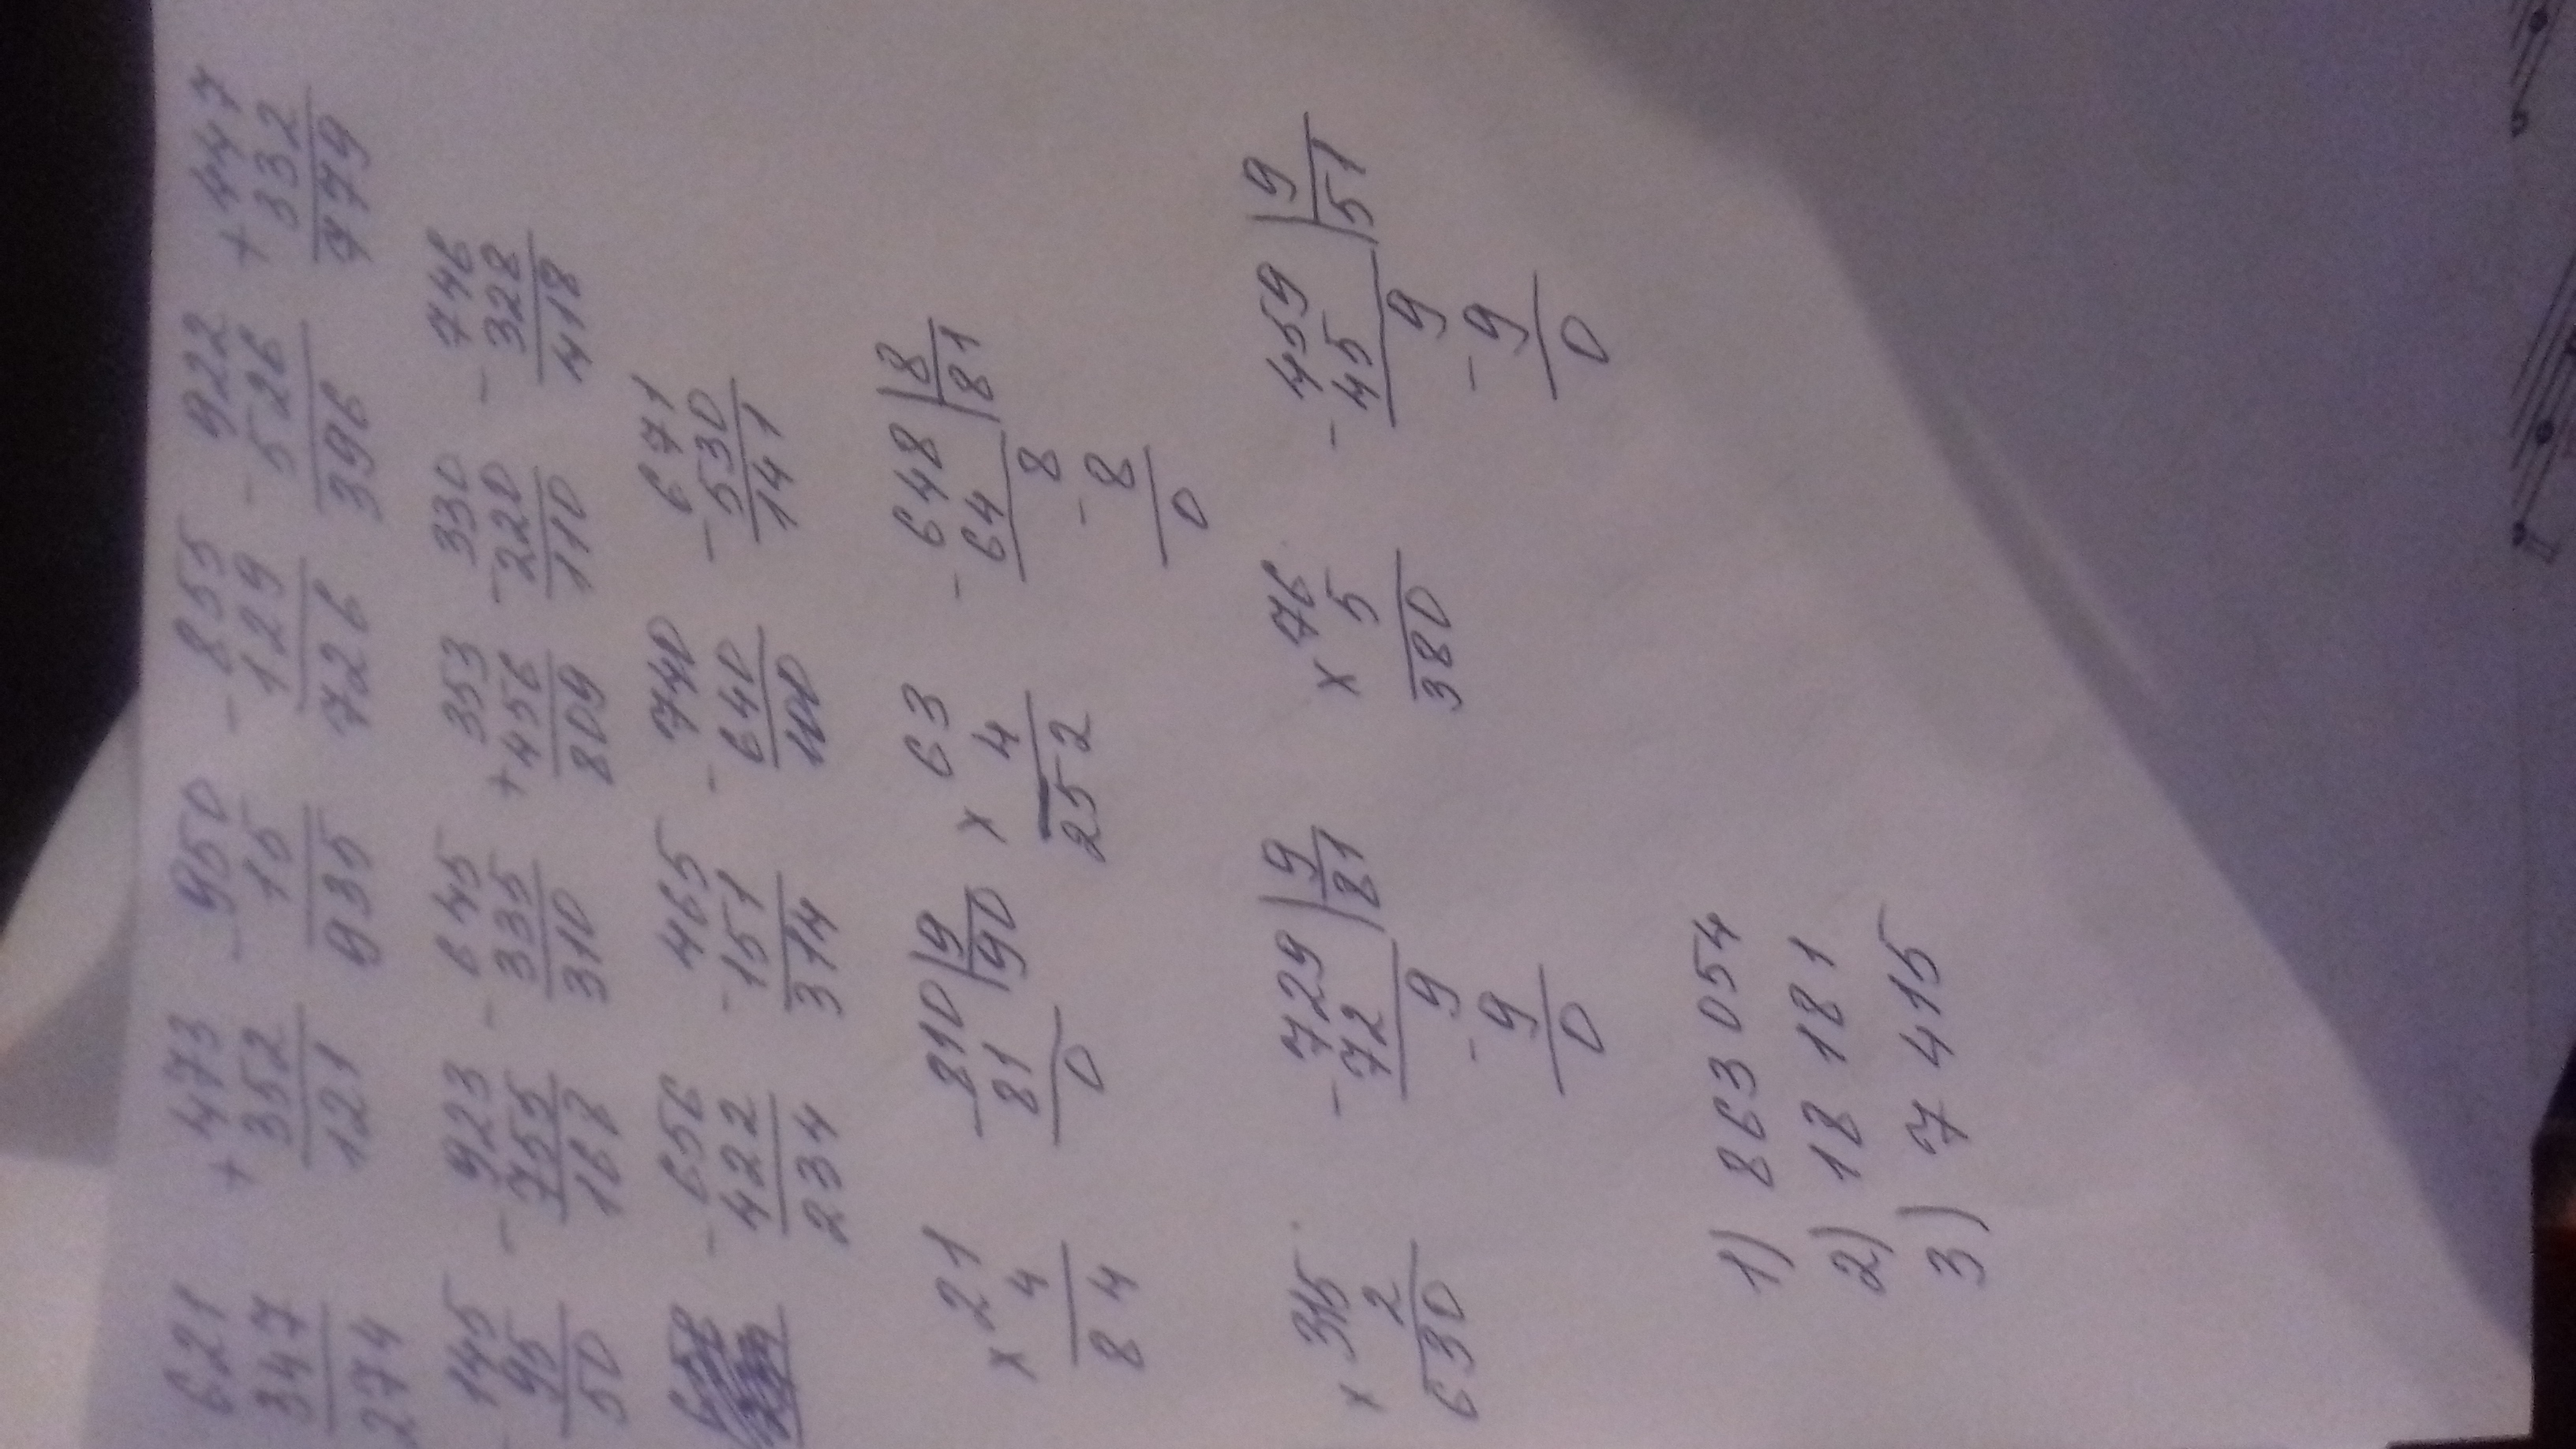 621 + 473 - 950 - 855 - 922 + 447
347 352 15 129 526 332
274 121 935 726 396 779
- 145 - 923 - 645 353 - 330 - 746
95 755 335 + 456 220 328
50 168 310 809 110 418
- 656 - 465 - 740 - 671
422 151 640 530
234 314 100 141
× 21 - 810 | 9 × 63 - 648 | 8
4 81 90 4 64 81
84 0 252 8
- 8
0
× 315 - 729 | 9 × 76 - 459 | 9
2 72 81 5 45 51
630 9 380 9
- 9 - 9
0 0
1) 863 054
2) 18 18 1
3) 7 415